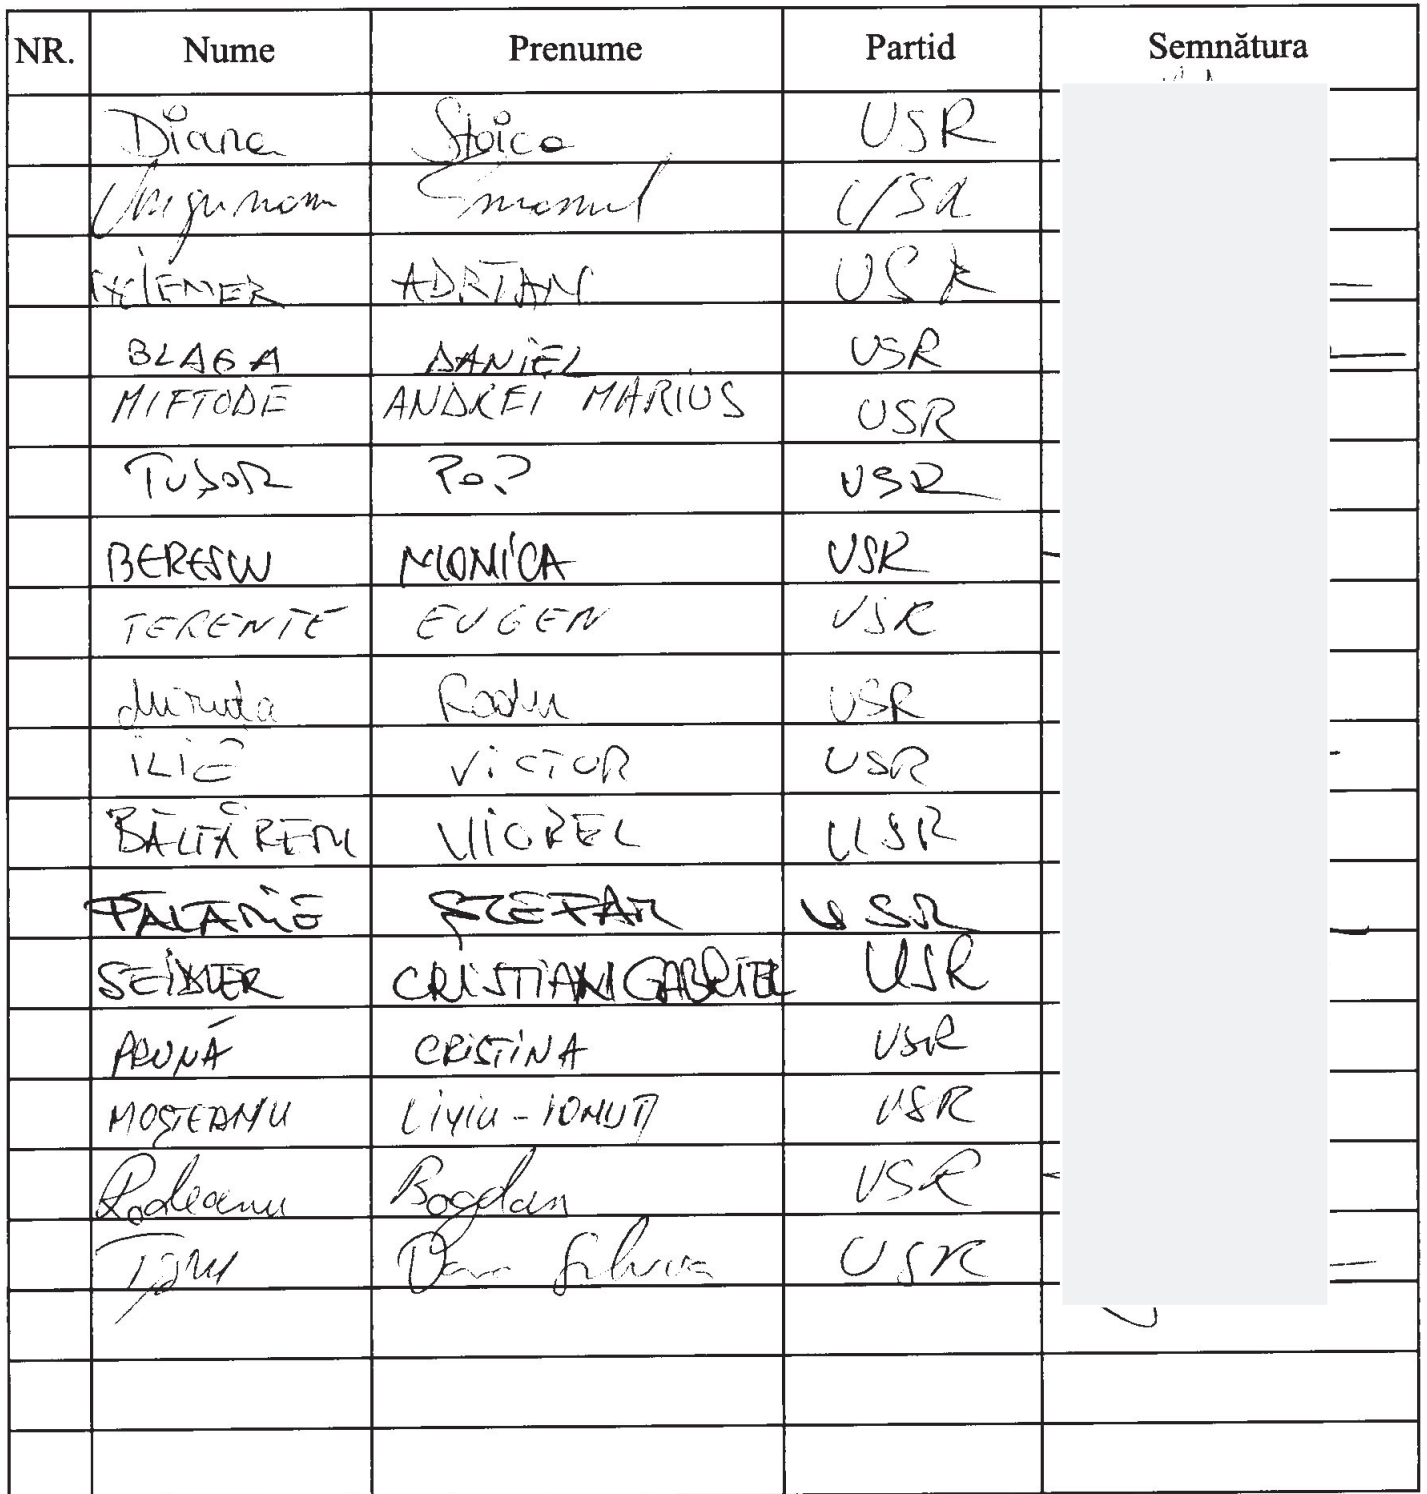 NR. Nume Prenume Partid Semnătura
Diana Stoica USR
Ungureanu Emanuel USR
WIENER ADRIAN USR
BLAGA DANIEL USR
MIFTODE ANDREI MARIUS USR
TUDOR POP USR
BERESCU MONICA USR
TERENTE EUGEN USR
Miruta Radu USR
ILIE VICTOR USR
BĂLTĂREȚU VIOREL USR
PĂLĂRIE ȘTEFAN USR
SEIDLER CRISTIAN GABRIEL USR
PRUNĂ CRISTINA USR
MOȘTEANU LIVIU-IONUȚ USR
Rodeanu Bogdan USR
USR